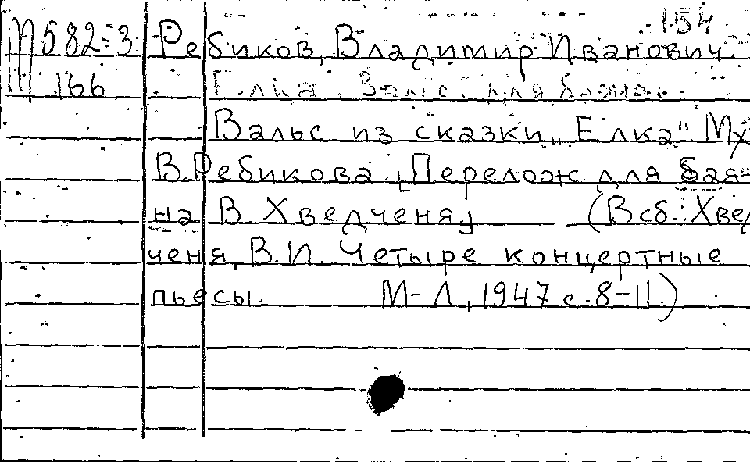 154
М 582-3 Ребиков, Владимир Иванович.
166 Елка. Вальс. для баяна.
Вальс из сказки „Елка" Му
В. Ребикова. [Перелож для бая-
на В. Хведченя] (В сб.: Хвед
ченя, В.П. Четыре концертные
пьесы. М-Л, 1947 с. 8-11)